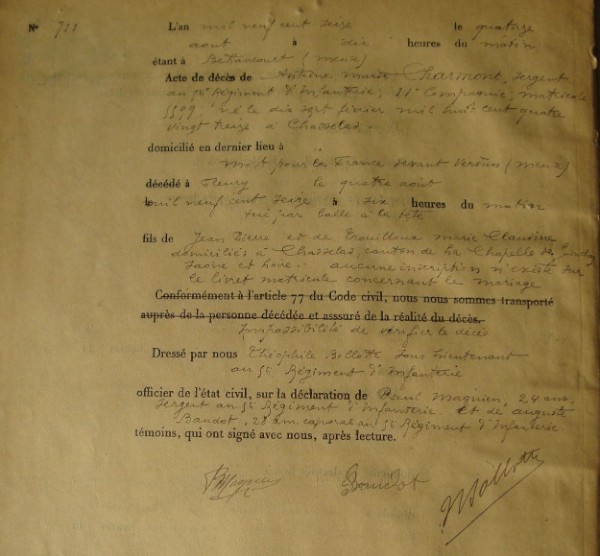 N° 711 L'an mil neuf cent seize le quatorze
aout à dix heures du matin
étant à Bettancourt (meuse)
Acte de décès de Antoine marie Charmont, sergent
au 5e Régiment d'Infanterie, 11e Compagnie, matricule
5599 né le dix sept février mil huit cent quatre
vingt treize à Chasselas.
domicilié en dernier lieu à
mort pour la France devant Verdun (meuse)
décédé à Fleury le quatre aout
le mil neuf cent seize à six heures du matin
tué par balle à la tête
fils de Jean Pierre et de Trouilloux marie Claudine
domiciliés à Chasselas, canton de la Chapelle de Guinchay
Saone et Loire. aucune inscription n'existe sur
le livret matricule concernant le mariage
Conformément à l'article 77 du Code civil, nous nous sommes transporté
auprès de la personne décédée et asssuré de la réalité du décès.
Impossibilité de vérifier le décès
Dressé par nous Théophile Bollotte Sous Lieutenant
au 5e Régiment d'Infanterie
officier de l'état civil, sur la déclaration de Paul Magnien, 24 ans,
sergent au 5e Régiment d'Infanterie. et de auguste
Baudot, 28 ans caporal au 5e Régiment d'Infanterie
témoins, qui ont signé avec nous, après lecture.
PMagnien Baudot Bollotte